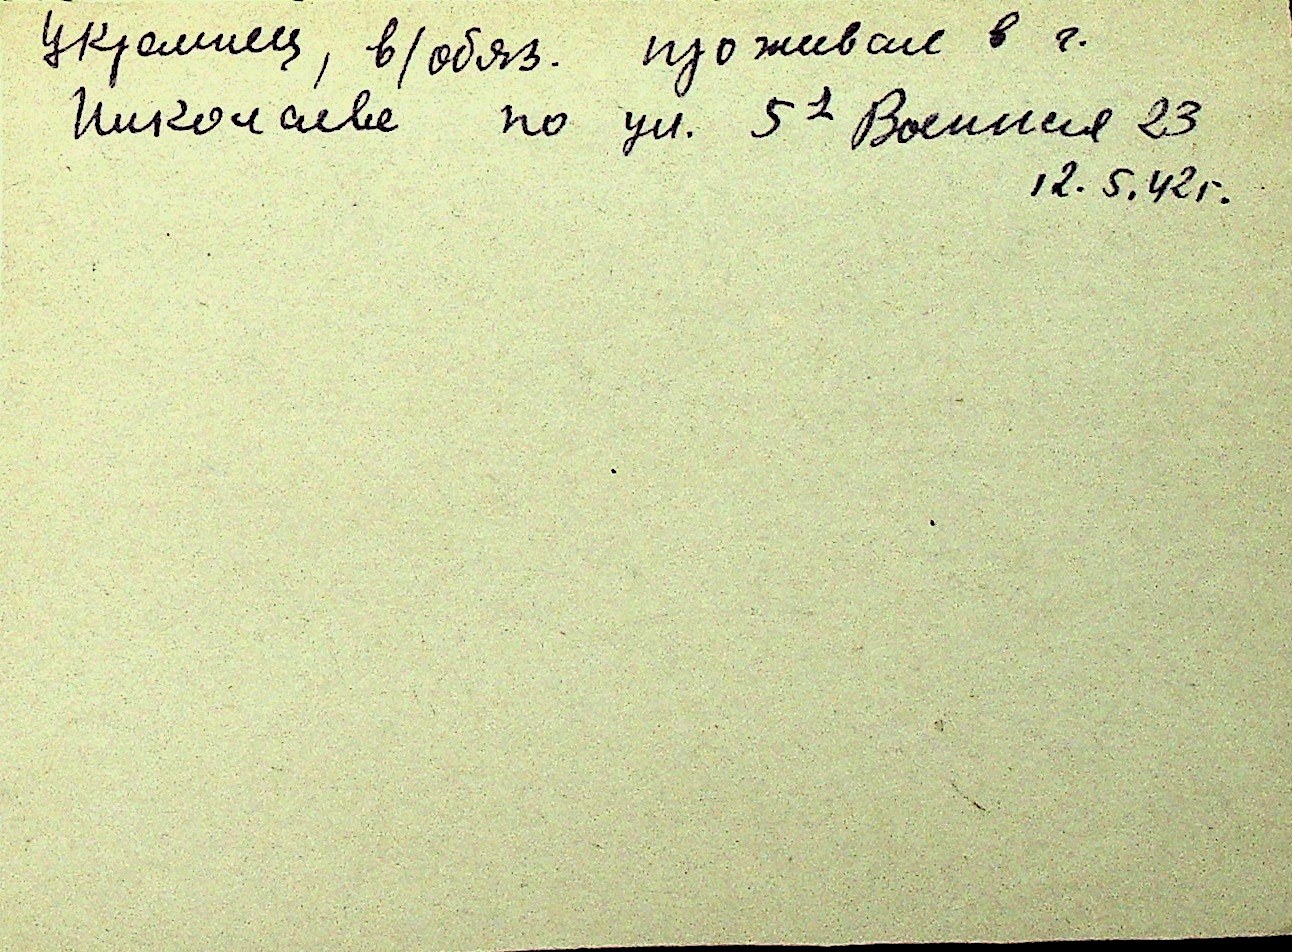 Украинец, в/обяз. проживал в г.
Николаеве по ул. 5я Военная 23
12.5.42г.